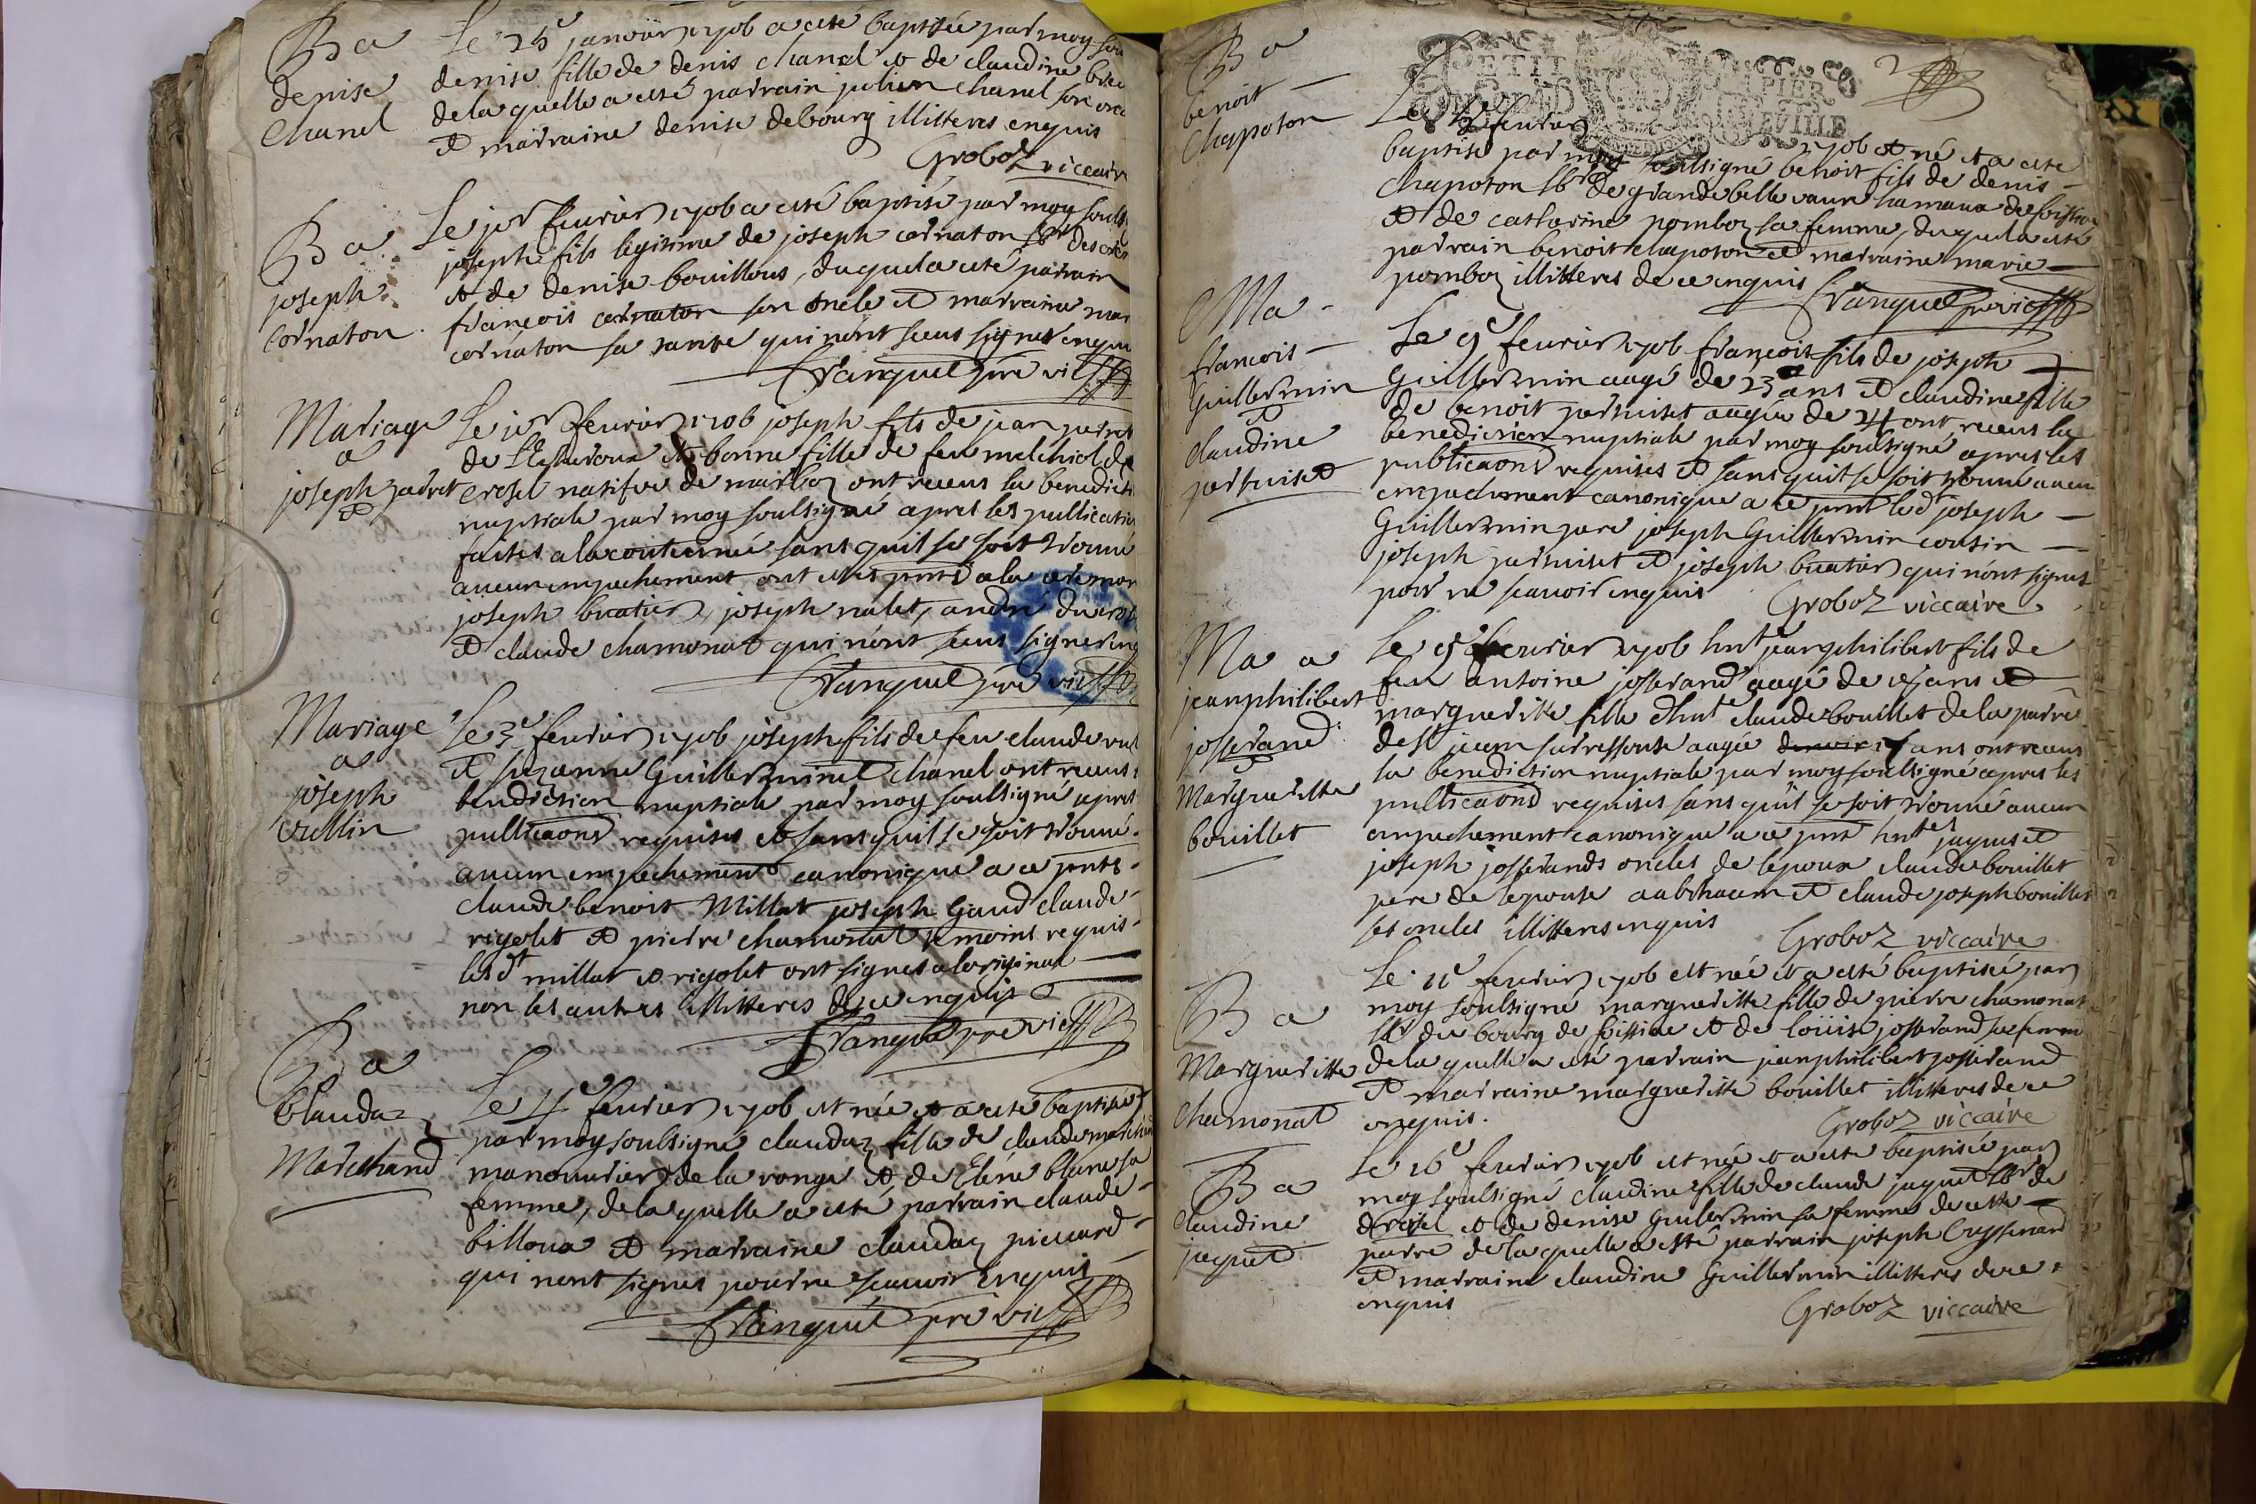 Ba
denise
Chanel
Le 25e janvier 1706 a esté baptisée par moy
denise fille de denis chanel et de claudine
de la quelle a esté parrain julien Chanel son
et marraine denise debourg illitteres enquis
Groboz viccaire
Ba
joseph
Cornaton
Le jer feurier 1706 a esté baptisé par moy
joseph fils legitime de joseph cornaton lbr des
et de denise bouilloux, duquel a esté parrain
françois cornaton son oncle et marraine
cornaton sa tante qui n'ont sceus signer
Franquet pre vic
Mariage
a
joseph perret
et
Le jer feurier 1706 joseph fils de jean perret
de et bonne fille de feu melchiol
crosel natifve de marboz ont receus la
nuptiale par moy soulsigné apres les
faites a la coutumée sans quil se soit trouué
aucun empechement ont estes pnts a la
joseph buatier, joseph nalet, andré
et claude chamonat qui n'ont sceus signer
Franquet pre vic
Mariage
a
joseph
vullin
Le 3e feurier 1706 joseph fils de feu claude
et suzanne Guillermine chanel ont receus
benediction nuptiale par moy soulsigné apres
publicaons requises et sans quil se soit trouué
aucun empechement canonique a ce pnts
claude benoit Millat joseph Gaud claude
rigolet et pierre chamonat temoins requis
lesdt millat et rigolet ont signes a loriginal
non les autres illitteres de ce enquis
Franquet pre vic
Ba
Claudaz
Marchand
Le 4e feurier 1706 est née et a esté baptisée
par moy soulsigné claudaz fille de claude
manouurier de la ronge et de Eléne blanc sa
femme, de la quelle a esté parrain claude
billoux et marraine claudaz picuard
qui nont signes pour ne scauoir Enquis
Franquet pre vic
Ba
benoit
Chapoton
PETIT PAPIER
Le feurier 1706 est né et a esté
baptisé par moy soulsigné benoit fils de denis
Chapoton lbr de grande belle vaure hamaux de foissiat
et de catherine pomboz sa femme, duquel a esté
parrain benoit chapoton et marraine marie
pomboz illitteres de ce enquis
Franquet pre vic
Ma
francois
Guillermin
et
claudine
perruiset
Le 9e feurier 1706 françois fils de joseph
Guillermin aagé de 23 ans et claudine fille
de benoit perruiset aagée de 24 ont receus la
benediction nuptiale par moy soulsigné apres les
publicaons requises et sans quil se soit trouué aucun
empechement canonique a ce pnt led joseph
Guillermin pere joseph Guillermin cousin
joseph perruiset et joseph buatier qui n'ont signes
pour ne scauoir enquis
Groboz viccaire
Ma a
jeanphilibert
josserand
et
Margueritte
bouillet
Le 9e feurier 1706 hnte jeanphilibert fils de
feu antoine josserand aagé de ans et
margueritte fille dhnte claude bouillet de la parre
de st jean sur ressouse aagée ans ont receus
la benediction nuptiale par moy soulsigné apres les
publicaons requises sans quil se soit trouué aucun
empechement canonique a ce pnt hntes jaques et
joseph josserands oncles de lepoux claude bouillet
pere de lepouse et claude joseph bouillet
ses oncles illitteres enquis
Groboz viccaire
Ba
Margueritte
chamonat
Le 11e feurier 1706 est née et a esté baptisée par
moy soulsigné margueritte fille de pierre chamonat
lbr du bourg de foissiat et de loüise josserand sa femme
de la quelle a esté parrain jeanphilibert josserand
et marraine margueritte bouillet illitteres de ce
enquis.
Groboz viccaire
Ba
claudine
jaquet
Le 16e feurier 1706 est née et a esté baptisée par
moy soulsigné claudine fille de claude jaquet lbr de
et de denise Guilermin sa femme de cette
parre de la quelle a esté parrain joseph Cuyssenard
et marraine claudine Guillermin illitteres de ce
enquis
Groboz viccaire